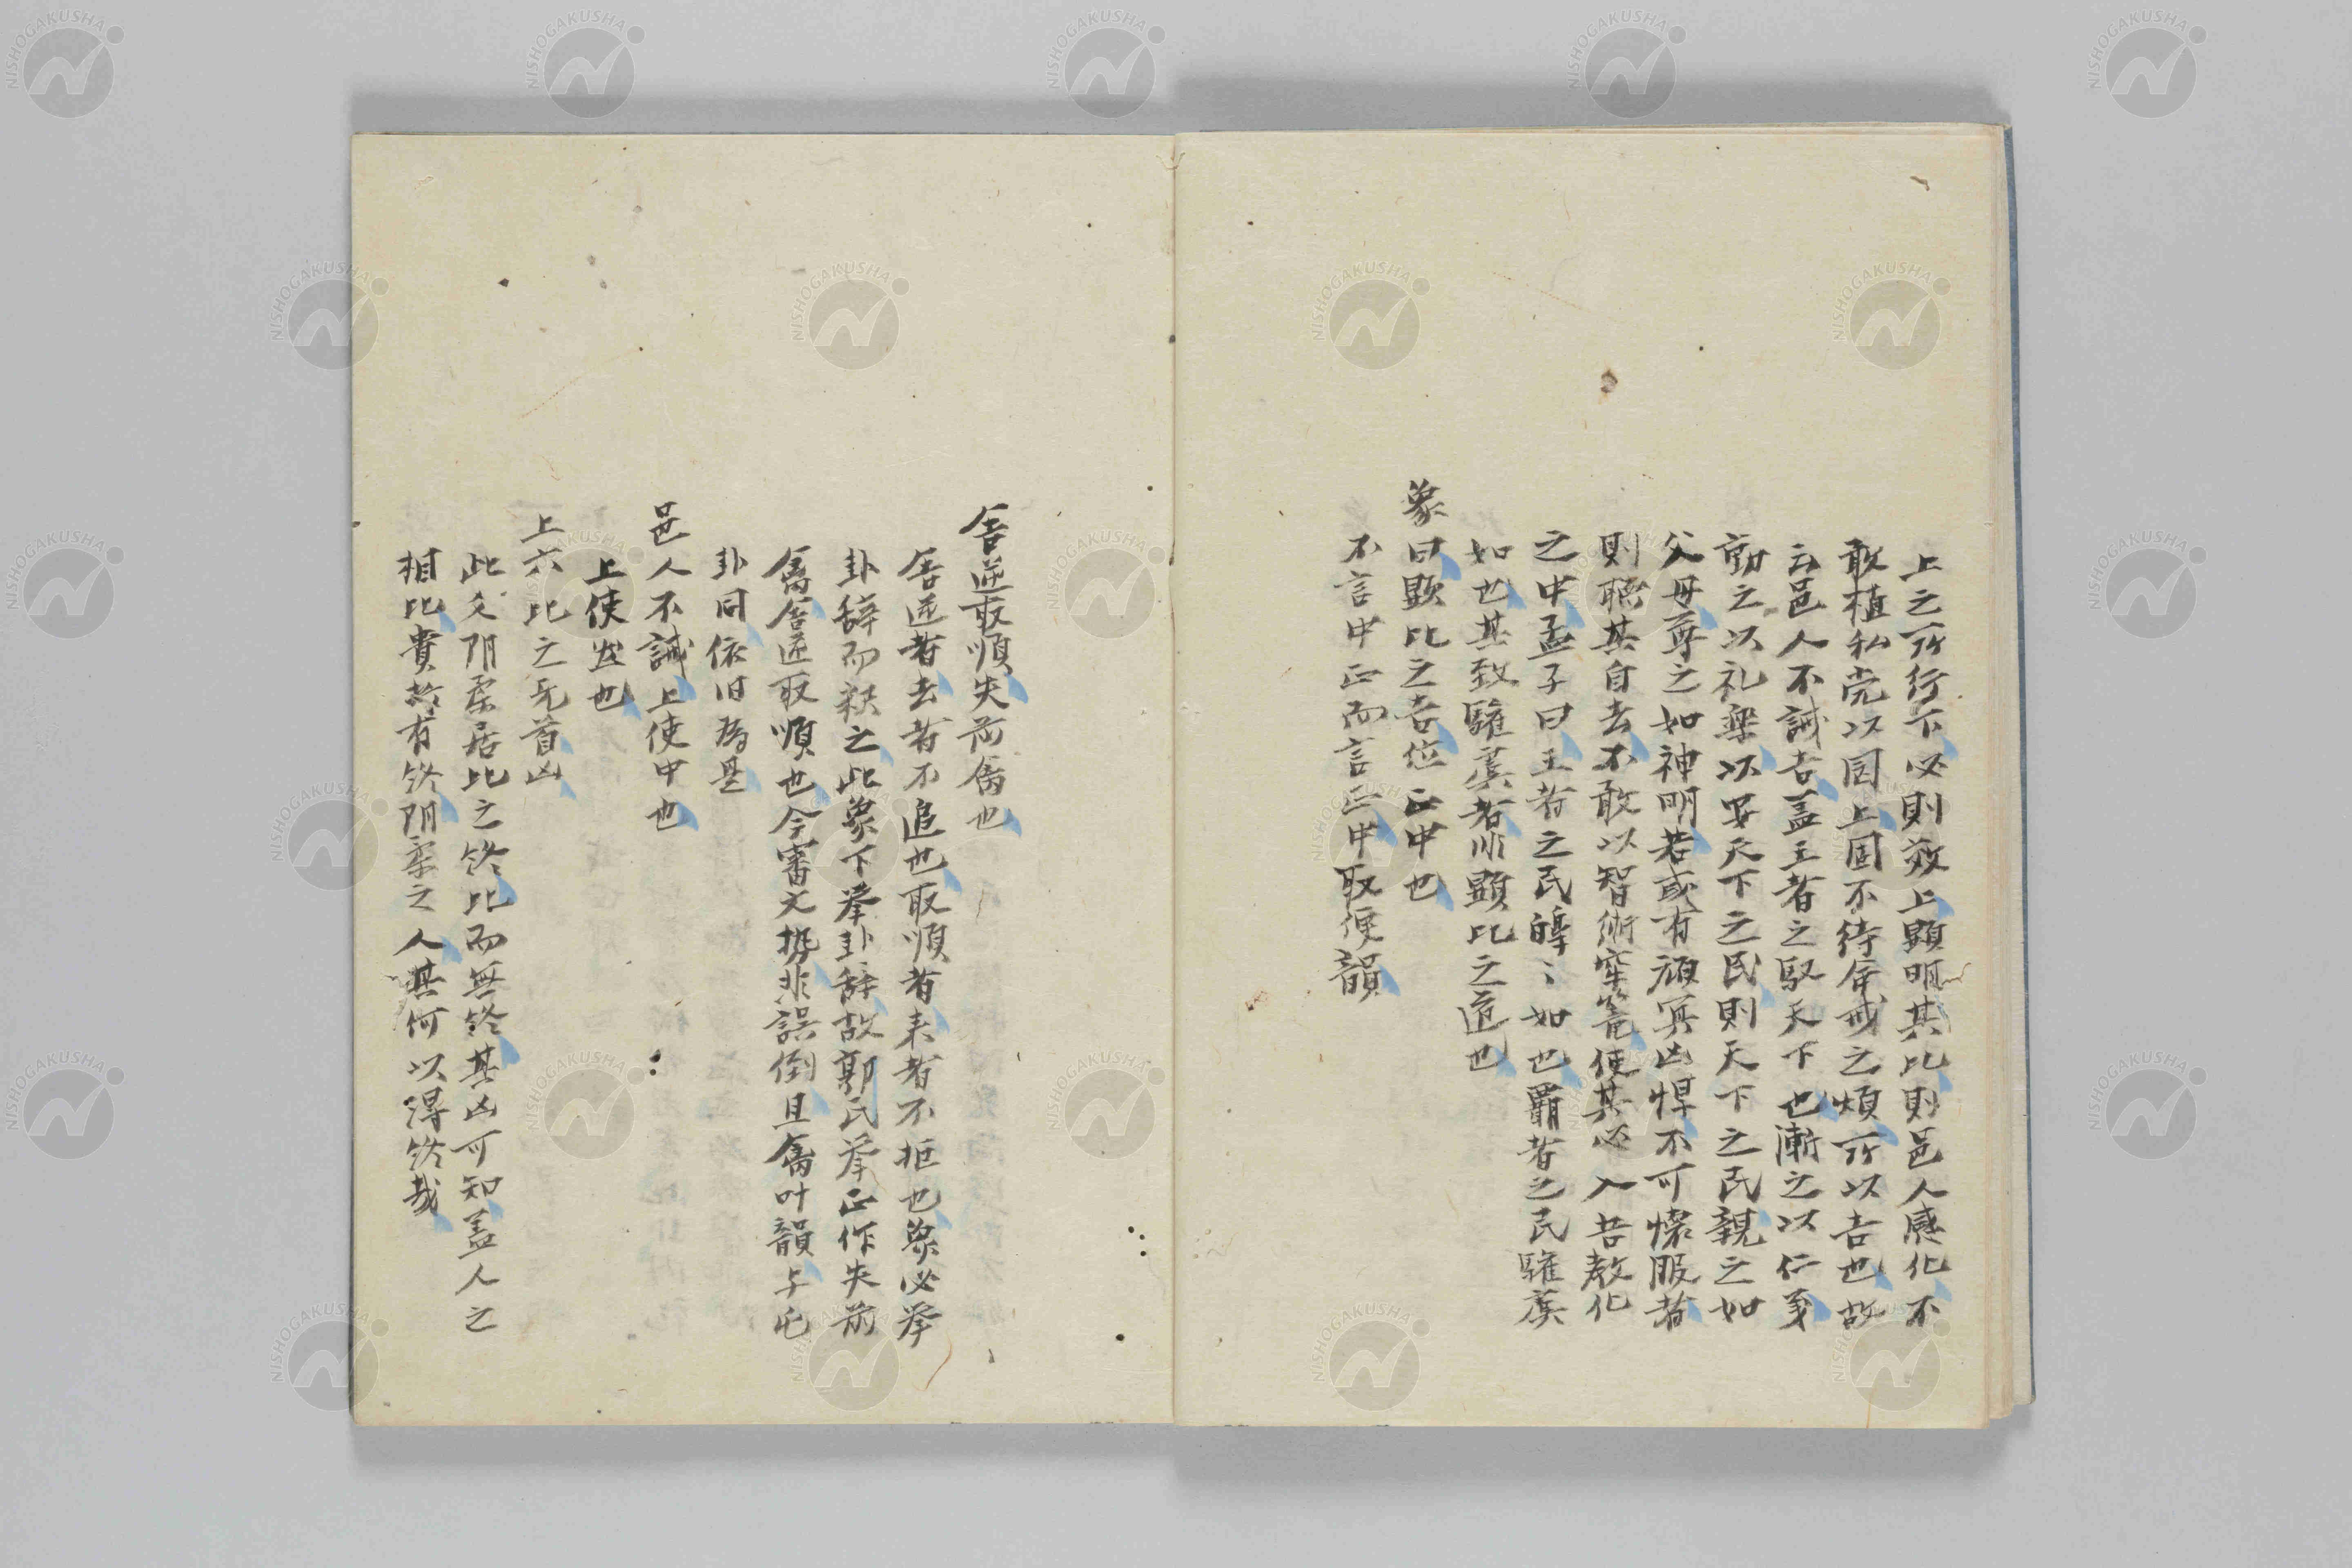 上之所行下必則效上顕明其比則邑人感化不
敢植私党以固上固不待備戒之煩所以吉也故
云邑人不誡吉蓋王者之馭天下也漸之以仁义
動之以礼楽以安天下之民則天下之民親之如
父母尊之如神明若或有頑冥凶悍不可懐服者
則聴其自去不敢以智術牢篭使其必入吾教化
之中孟子曰王者之民皥〻如也覇者之民驩虞
如也其致驩虞者非顕比之道也
象曰顕比之吉位正中也
不言中正而言正中取便韻
舍逆取順失前禽也
舍逆者去者不追也取順者来者不拒也象必挙
卦辞而釈之此象下挙卦辞故郭氏挙正作失前
禽舍逆取順也今審文勢非誤倒且禽叶韻与屯
卦同依旧為是
邑人不誡上使中也
上使然也
上六比之无首凶
此爻阴柔居比之終比而無終其凶可知蓋人之
相比貴於有終阴柔之人其何以得終哉
NISHOGAKUSHA